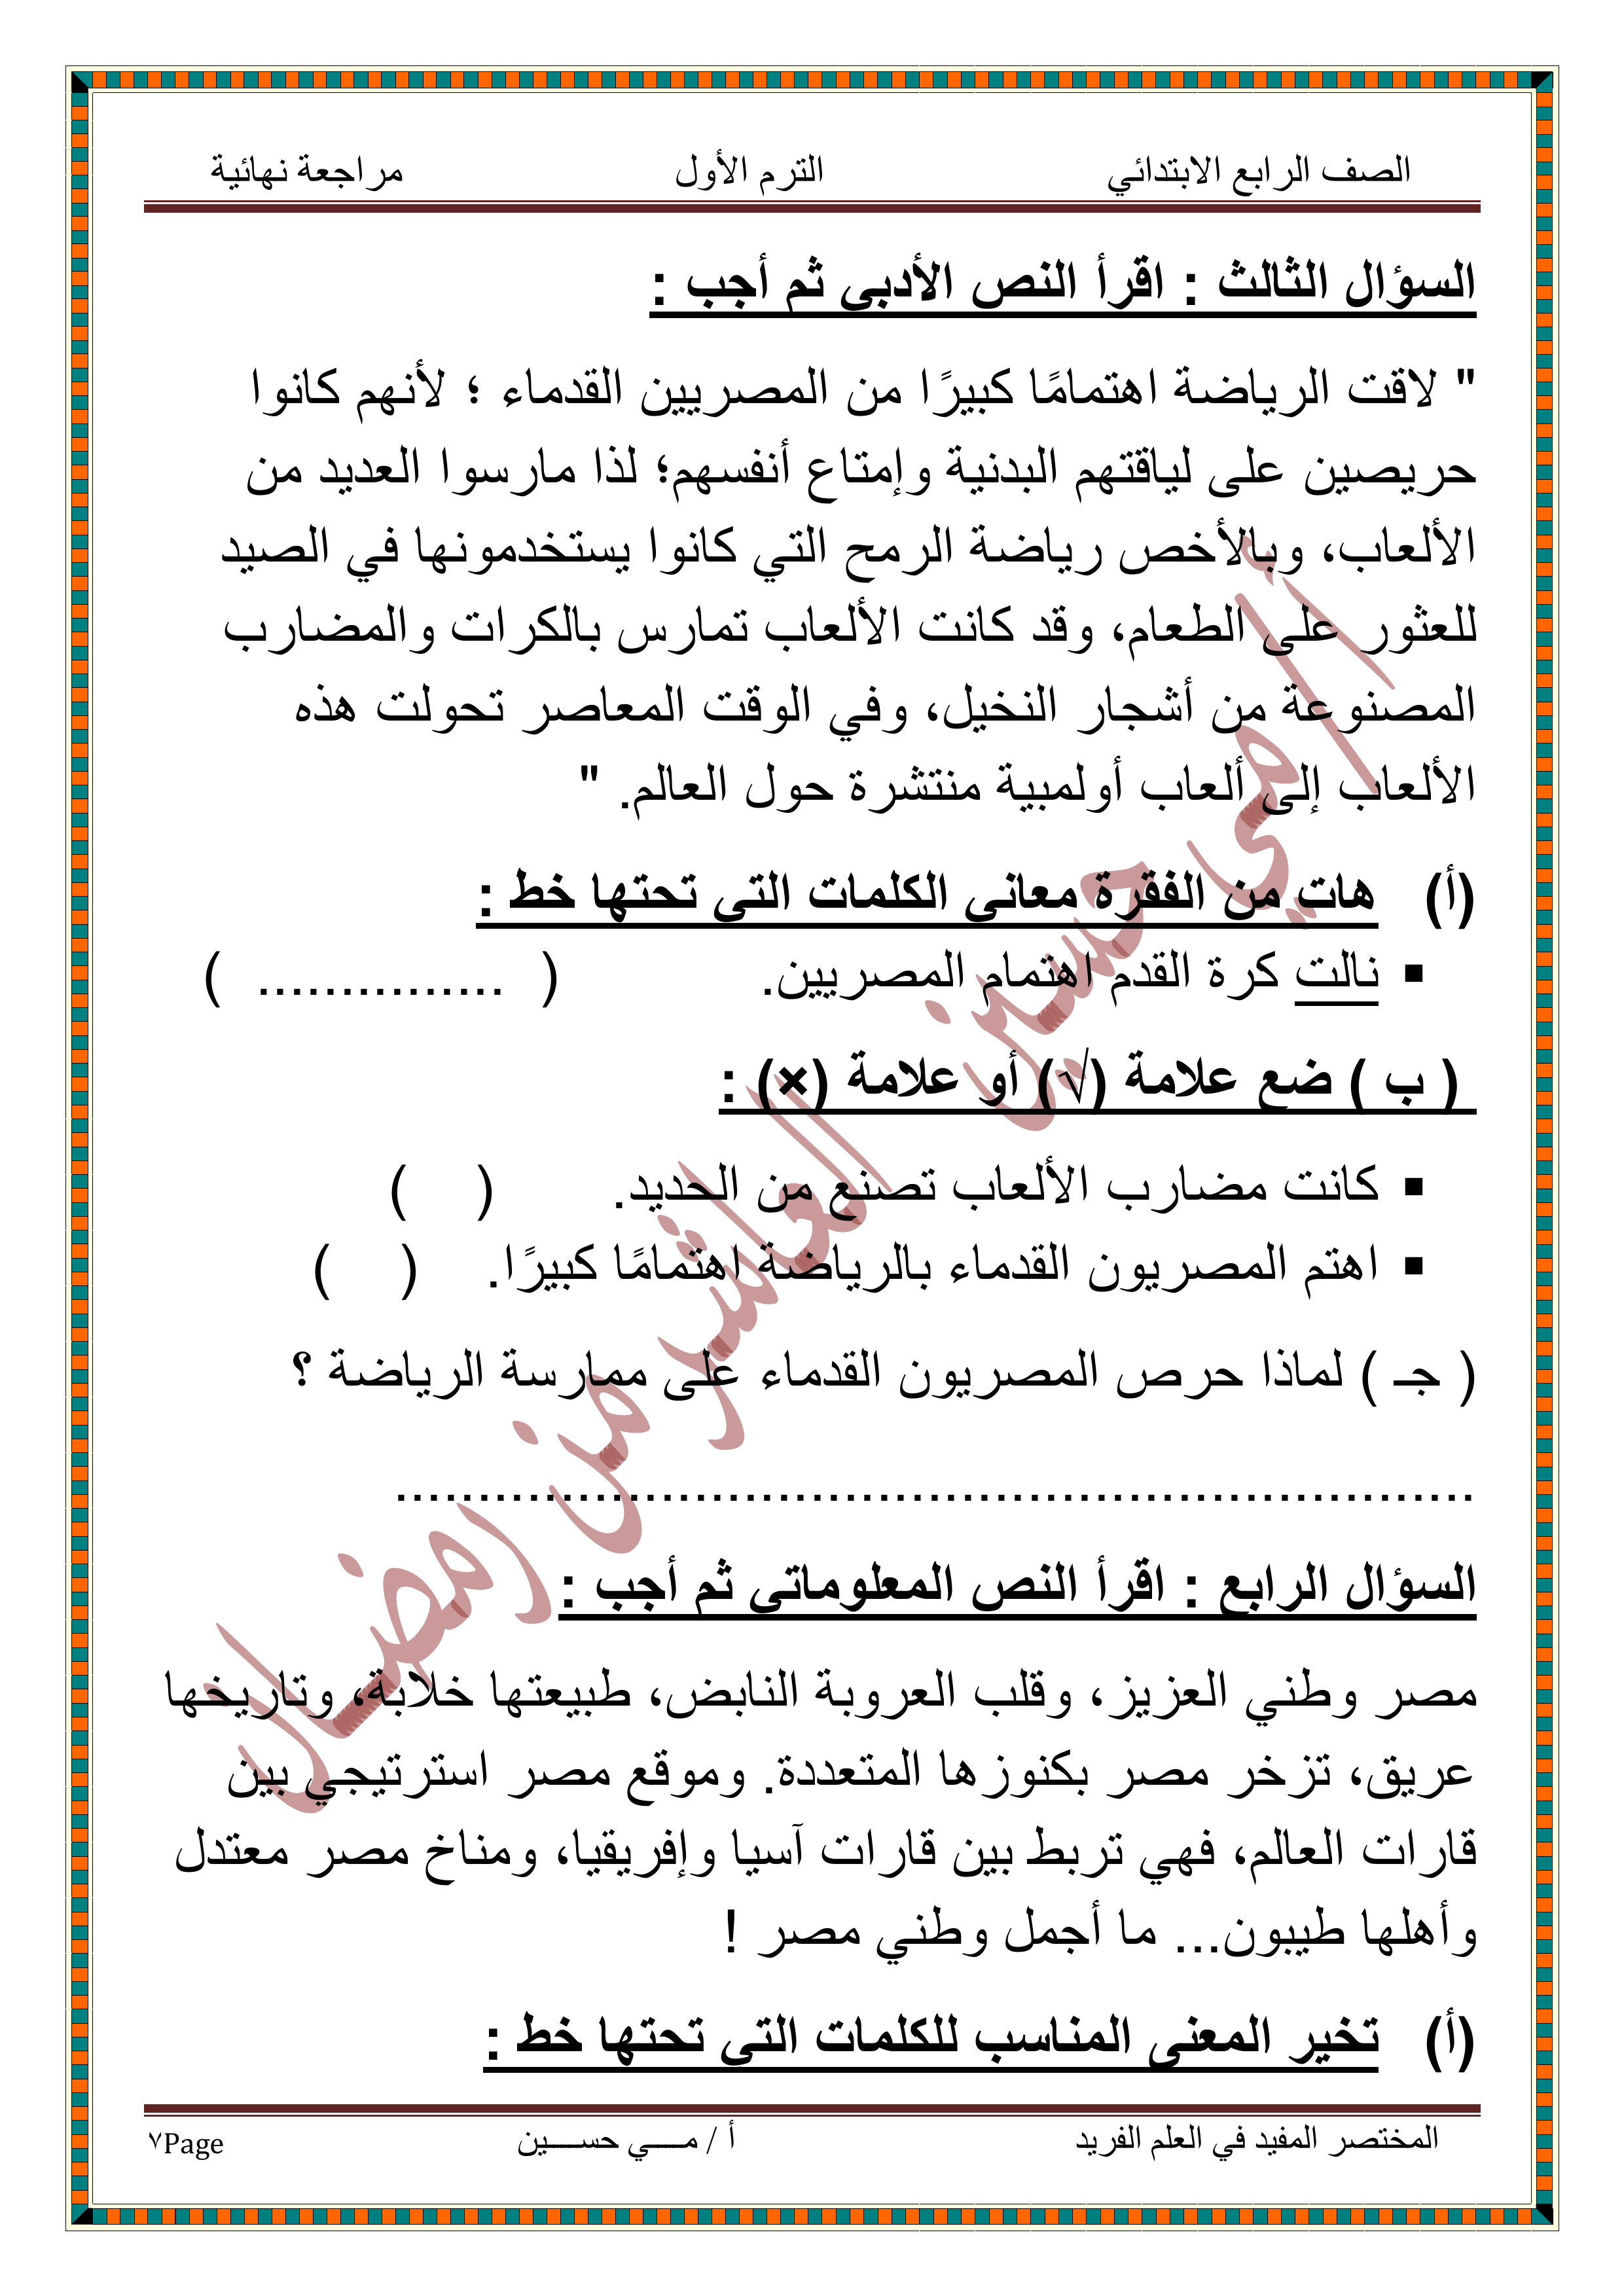 الصف الرابع الابتدائي الترم الأول مراجعة نهائية
السؤال الثالث : اقرأ النص الأدبي ثم أجب :
" لاقت الرياضة اهتمامًا كبيرًا من المصريين القدماء ؛ لأنهم كانوا
حريصين على لياقتهم البدنية وإمتاع أنفسهم؛ لذا مارسوا العديد من
الألعاب، وبالأخص رياضة الرمح التي كانوا يستخدمونها في الصيد
للعثور على الطعام، وقد كانت الألعاب تمارس بالكرات والمضارب
المصنوعة من أشجار النخيل، وفي الوقت المعاصر تحولت هذه
الألعاب إلى ألعاب أولمبية منتشرة حول العالم. "
(أ) هات من الفقرة معاني الكلمات التي تحتها خط :
▪ نالت كرة القدم اهتمام المصريين. ( ............... )
( ب ) ضع علامة (√) أو علامة (×) :
▪ كانت مضارب الألعاب تصنع من الحديد. ( )
▪ اهتم المصريون القدماء بالرياضة اهتمامًا كبيرًا. ( )
( جـ ) لماذا حرص المصريون القدماء على ممارسة الرياضة ؟
.................................................................
السؤال الرابع : اقرأ النص المعلوماتي ثم أجب :
مصر وطني العزيز، وقلب العروبة النابض، طبيعتها خلابة، وتاريخها
عريق، تزخر مصر بكنوزها المتعددة. وموقع مصر استرتيجي بين
قارات العالم، فهي تربط بين قارات آسيا وإفريقيا، ومناخ مصر معتدل
وأهلها طيبون... ما أجمل وطني مصر !
(أ) تخير المعنى المناسب للكلمات التي تحتها خط :
المختصر المفيد في العلم الفريد أ / مـــي حســـين ٧Page
أ/ مي حسين العاشر من رمضان